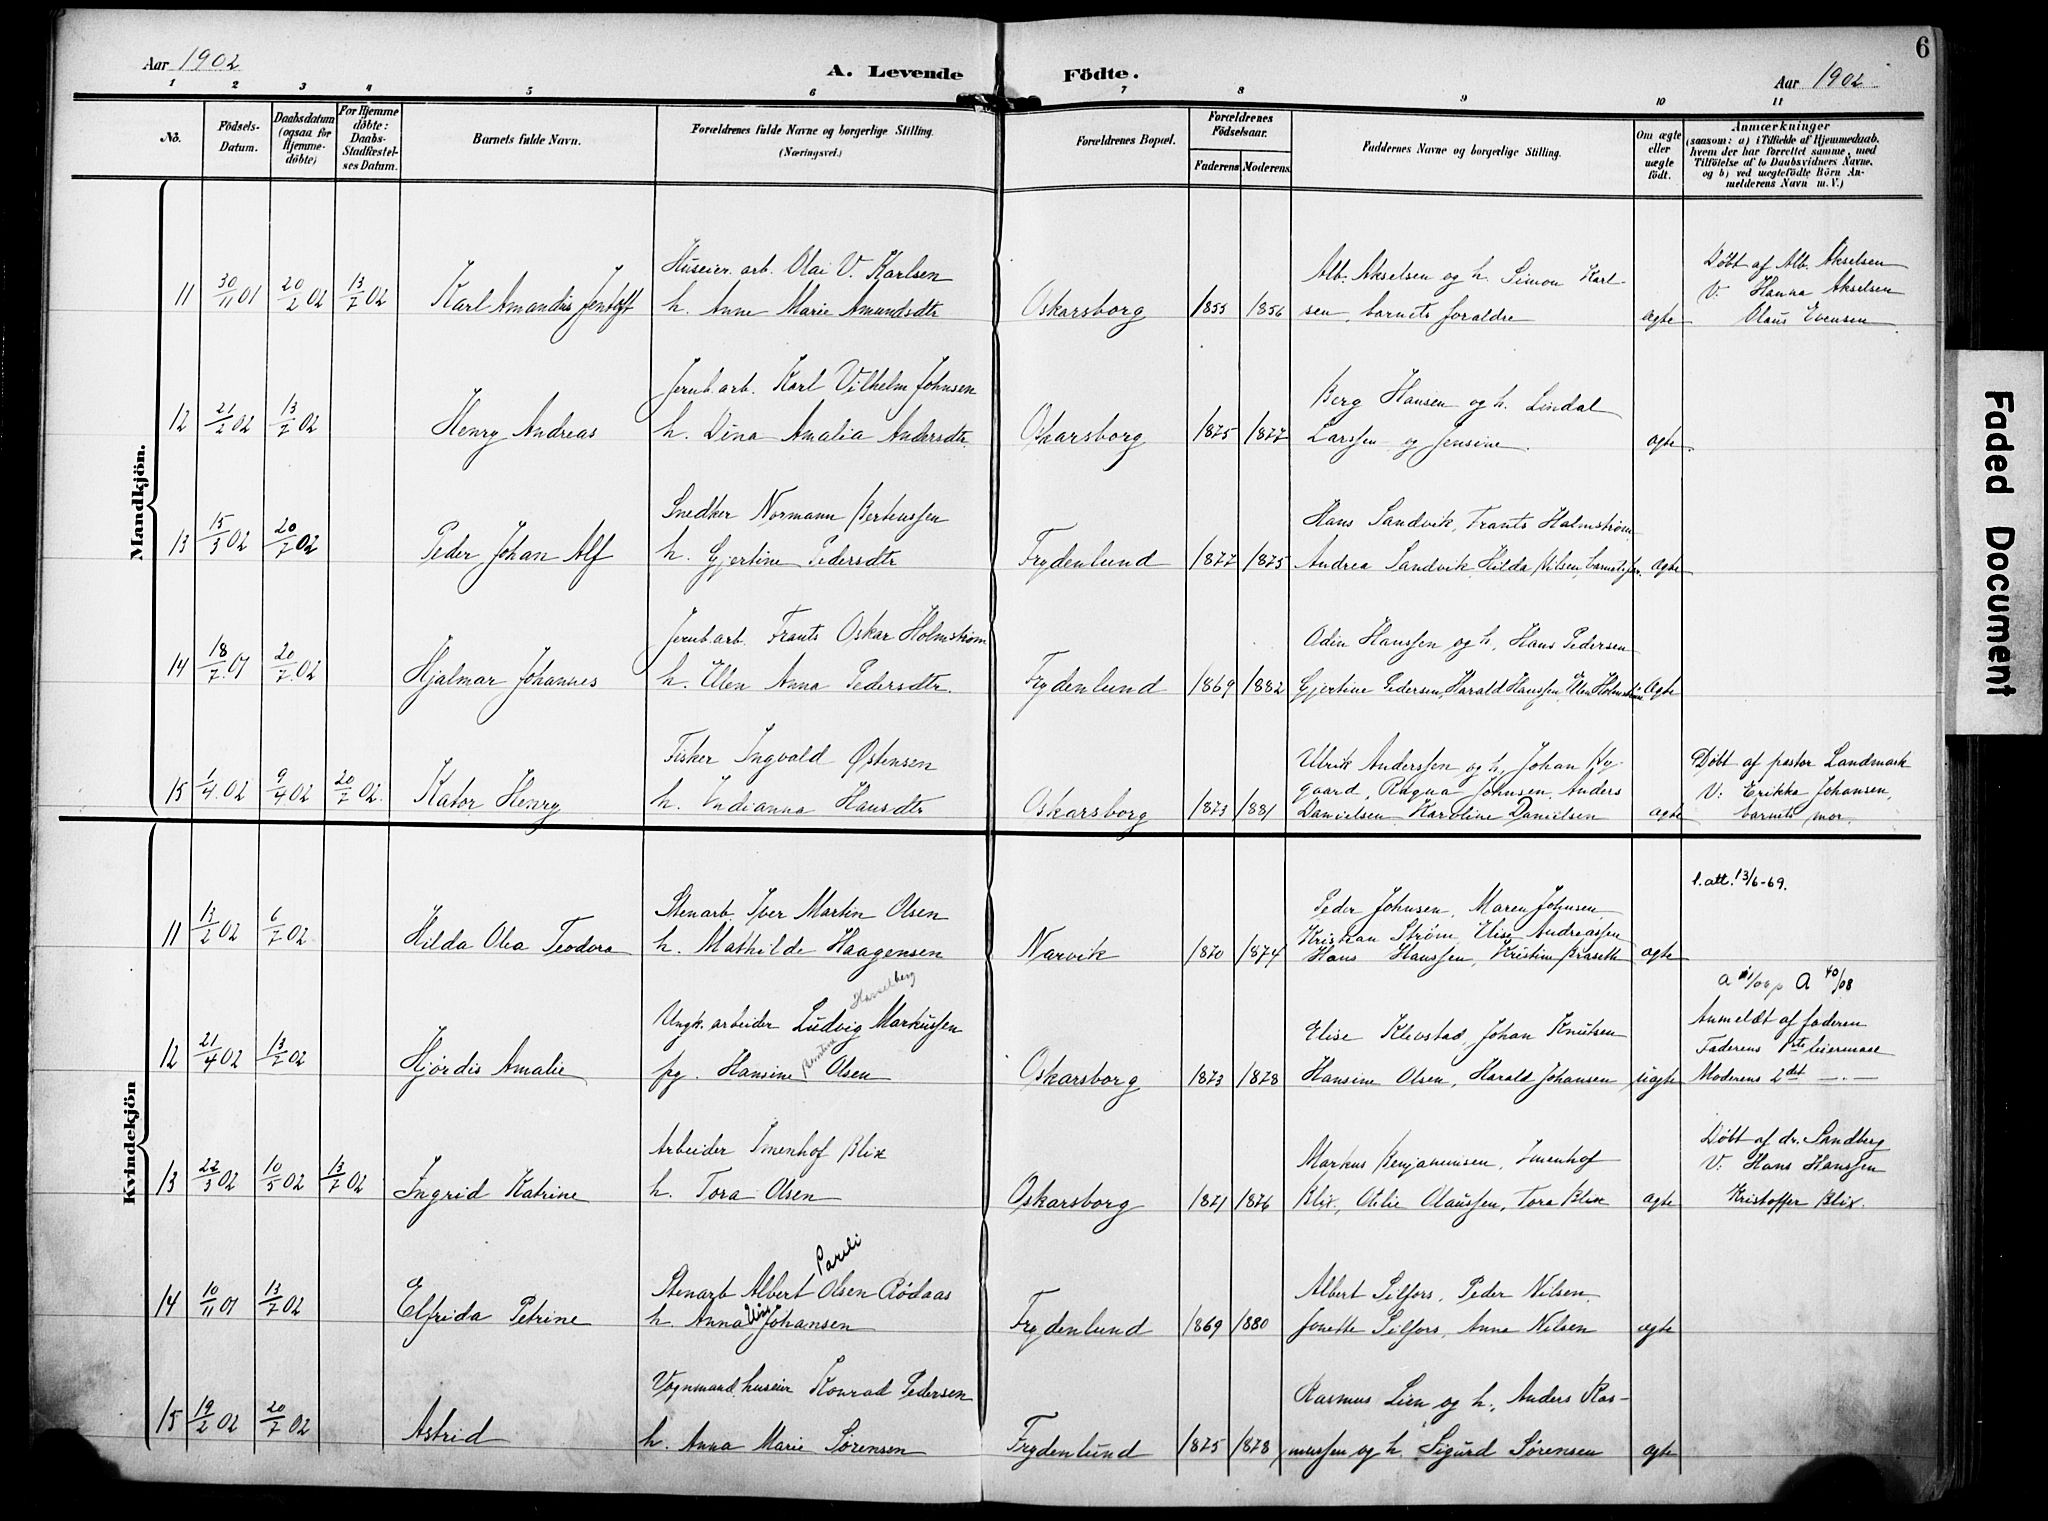 Aar 1902
A. Levende Födte.
Aar 1902
6
1 2 3 4 5 6 7 8 9 10 11
No.
Födsels-Datum.
Daabsdatum (ogsaa for Hjemmedöbte)
For Hjemmedöbte: Daabs-Stadfæstelses Datum.
Barnets fulde Navn.
Forældrenes fulde Navne og borgerlige Stilling.
(Næringsvei.)
Forældrenes Bopæl.
Forældrenes Födselsaar.
Faderens Moderens.
Faddernes Navne og borgerlige Stilling.
Om ægte eller uægte födt.
Anmærkninger
(saasom: a) i Tilfælde af Hjemmedaab, hvem der har forrettet samme, med Tilföielse af to Daabsvidners Navne, og b) ved uægtefödte Börn Anmelderens Navn m. V.)
Mandkjön.
Huseier. arb. Olai V. Karlsen
Alb. Akselsen og h. Simon Karl-
Døbt af Alb. Akselsen
V. Hanna Akselsen
11 30/11 01 20/2 02 13/7 02 Karl Amandus Jentoft h. Anne Marie Amundsdtr Oskarsborg 1855 1856 sen, barnets foraldre ægte Olaus Evensen
Jernb arb. Karl Vilhelm Johnsen
Berg Hansen og h. Lindal
12 21/2 02 13/7 02 Henry Andreas h. Dina Amalia Andersdtr Oskarsborg 1875 1877 Larssen og Jensine ægte
Snedker Normann Bertenssen
Hans Sandvik, Frants Holmstrøm
13 15/3 02 20/7 02 Peder Johan Alf h. Gjertine Pedersdtr Frydenlund 1877 1875 Andrea Sandvik, Hilda Nilsen, barnets far. ægte
Jernb arb. Frants Oskar Holmstrøm
Odin Hanssen og h, Hans Pedersen
14 18/7 01 20/7 02 Hjalmar Johannes h. Ellen Anna Pedersdtr. Frydenlund 1869 1882 Gjertine Pedersen, Harald Hanssen, Ellen Holmstrøm ægte
Fisker Ingvald Østensen
Ulrik Anderssen og h, Johan Ny-
Døbt af pastor Landmark
15 1/4 02 9/4 02 20/7 02. Kator Henry h. Indianna Hansdtr Oskarsborg 1873 1881
gaard, Ragna Johnsen, Anders
Danielsen Karoline Danielsen ægte
V: Erikka Johansen,
barnets mor.
Kvindekjön
l. att. 13/6-69.
Stenarb. Iver Martin Olsen
Peder Johnsen, Maren Johnsen
Kristian Strøm, Elise Andreassen
11 13/2 02 6/7 02 Hilda Olea Teodora h. Mathilde Haagensen Narvik 1870 1874 Hans Hanssen, Kristine Braseth ægte
A 40/08
Hasselberg
Ungk. arbeider Ludvig Markussen
Elise Klevstad, Johan Knutsen
Anmeldt af faderen
Faderens 1ste leiermaal
12 21/4 02 13/7 02 Hjørdis Amalie pg. Hansine Olsen Oskarsborg 1873 1878 Hansine Olsen, Harald Johansen uægte Moderens 2det —.—
Arbeider Imenhof Blix
Markus Benjaminsen, Imenhof
Døbt af dr. Sandberg
V: Hans Hanssen
13 22/3 02 10/5 02 13/7 02 Ingrid Katrine h. Tora Olsen Oskarsborg 1871 1876 Blix, Otilie Olaussen, Tora Blix ægte Kristoffer Blix.
Pareli
Stenarb Albert Olsen Rödaas
Albert Silfors, Peder Nilsen,
14 10/11 01 13/7 02 Elfrida Petrine h. Anna Johansen Frydenlund 1869 1880 Jonette Silfors, Anna Nilsen ægte
Vognmand, huseier Konrad Pedersen
Rasmus Lien og h, Anders Ras-
15 19/2 02 20/7 02 Astrid h. Anna Marie Sørensen Frydenlund 1875 1878 mussen og h. Sigurd Sørensen ægte
Faded Document